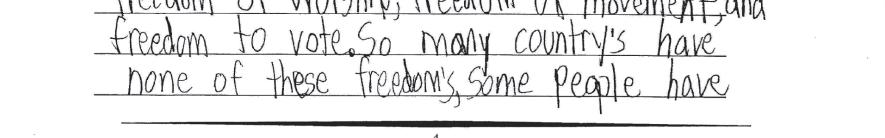 freedom of worship, freedom of movement, and
freedom to vote. So many country's have
none of these freedom's, some people have